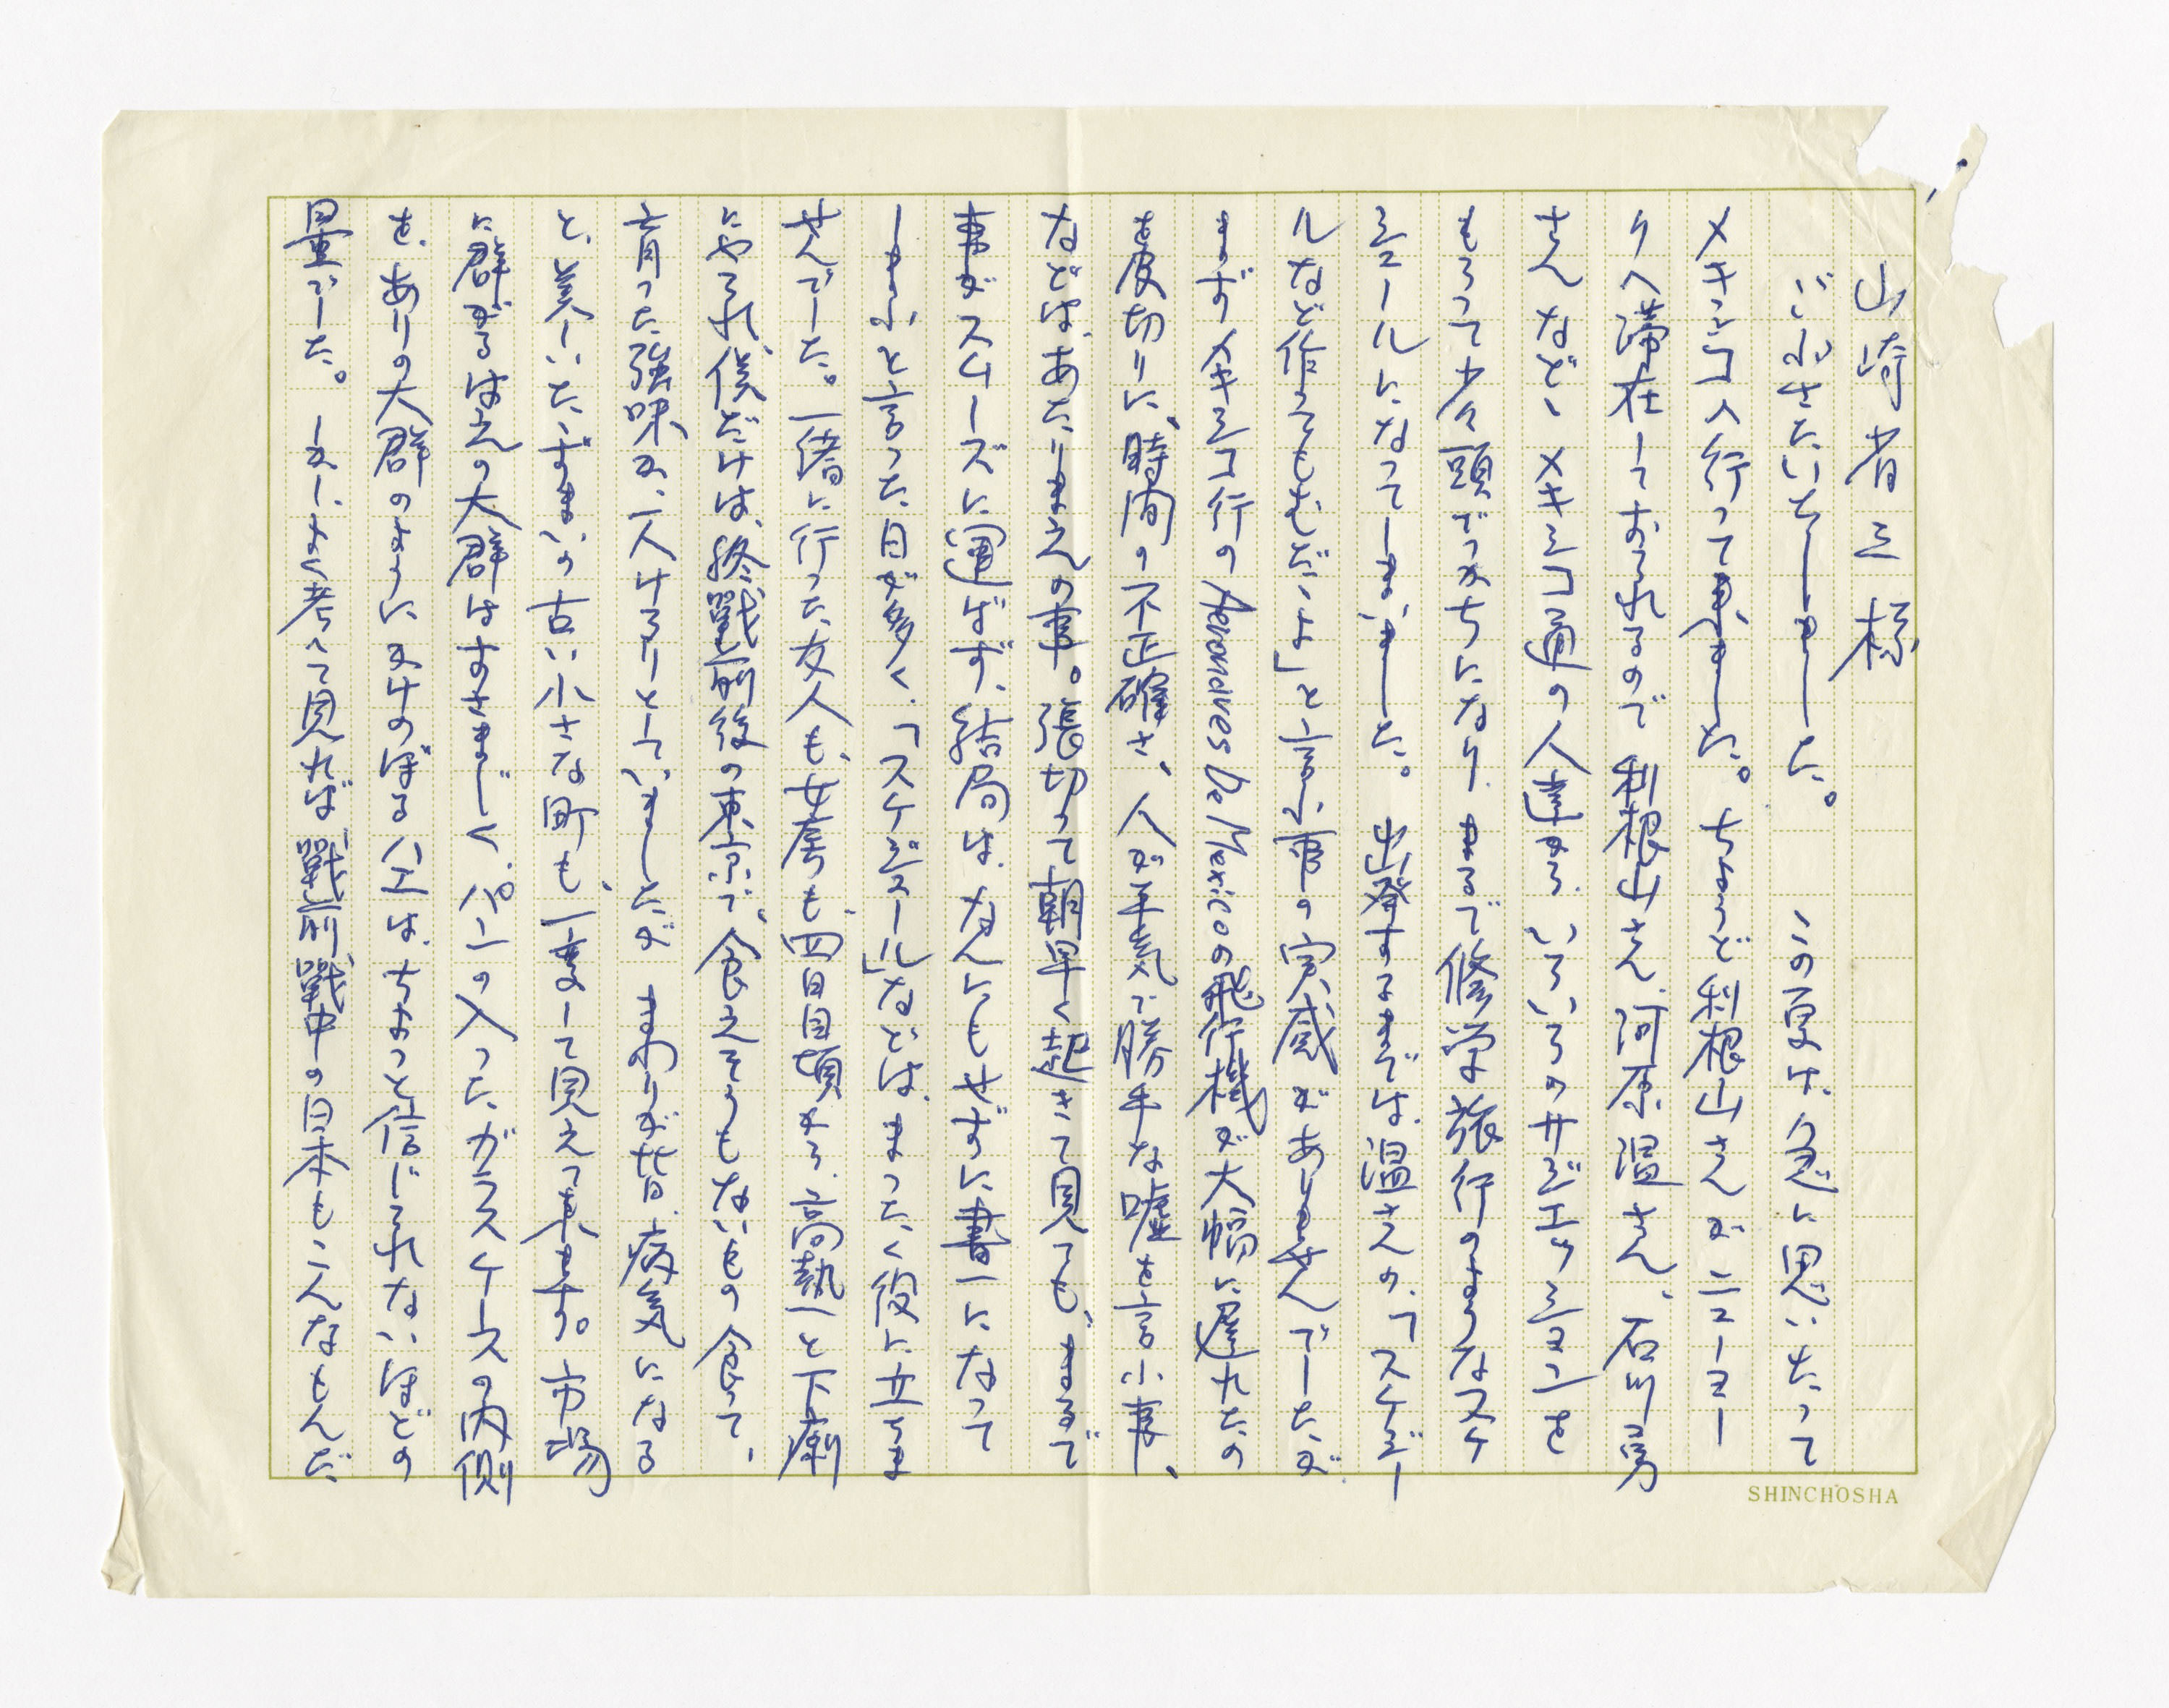 山崎省三様
ごぶさたいたしました。この夏は、急に思いたって
メキシコへ行って来ました。ちょうど利根山さんがニューヨー
クへ滞在しておられるので利根山さん、河原温さん、石川勇
さんなど、メキシコ通の人達から、いろいろのサゼエッションを
もらって少々頭でっかちになり、まるで修学旅行のようなスケ
ジュールになってしまいました。出発するまでは、温さんの、「スケジュー
ルなど作ってもむだいよ」と言ふ事の実感がありませんでしたが、
まずメキシコ行の Aeronaves De Mexicoの飛行機が大幅に遅れたの
を皮切りに、時間の不正確さ、人が平気で勝手な嘘を言ふ事、
などは、あたりまえの事。張切って朝早く起きて見ても、まるで
事がスムーズに運ばず、結局は、なんにもせずに一日になって
しまふと言った日が多く、「スケジュール」などは、まったく役に立ちま
せんでした。一緒に行った友人も、女房も、四日目頃から、高熱と下痢
にやられ、僕だけは、終戦前後の東京で、食えそうもないもの食って、
育った強味か、一人けろりとしていましたが、まわりが皆病気になる
と、美しいはずの古い小さな町も、一変して見えて来ます。市場
に群がるはえの大群はすさまじく、パンの入ったガラスケースの内側
を、ありの大群のようにかけのぼる蝿は、ちょっと信じられないほどの
量でした。しかし、よく考えて見れば、戦前戦中の日本もこんなもんだ
SHINCHOSHA